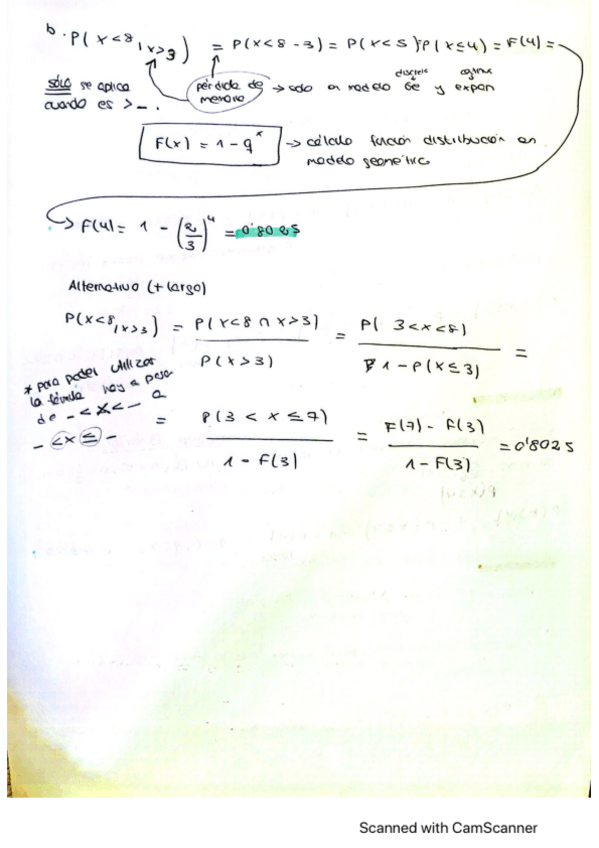 b. P(X<8/X>3) = P(X<8-3) = P(X<5) = P(X≤4) = F(4) =
sólo se aplica cuando es > _ .
pérdida de memoria → solo en modelo Ge y expon
discreta continua
F(x) = 1 - q^x → cálculo función distribución en modelo geométrico
→ F(4) = 1 - (2/3)^4 = 0'8025
Alternativo (+ largo)
P(X<8/X>3) = P(X<8 ∩ X>3) / P(X>3) = P(3<X<8) / 1-P(X≤3) =
* para poder utilizar la fórmula hay q pasar de _<X<_ a _<X≤_
= P(3<X≤7) / 1-F(3) = F(7)-F(3) / 1-F(3) = 0'8025
Scanned with CamScanner